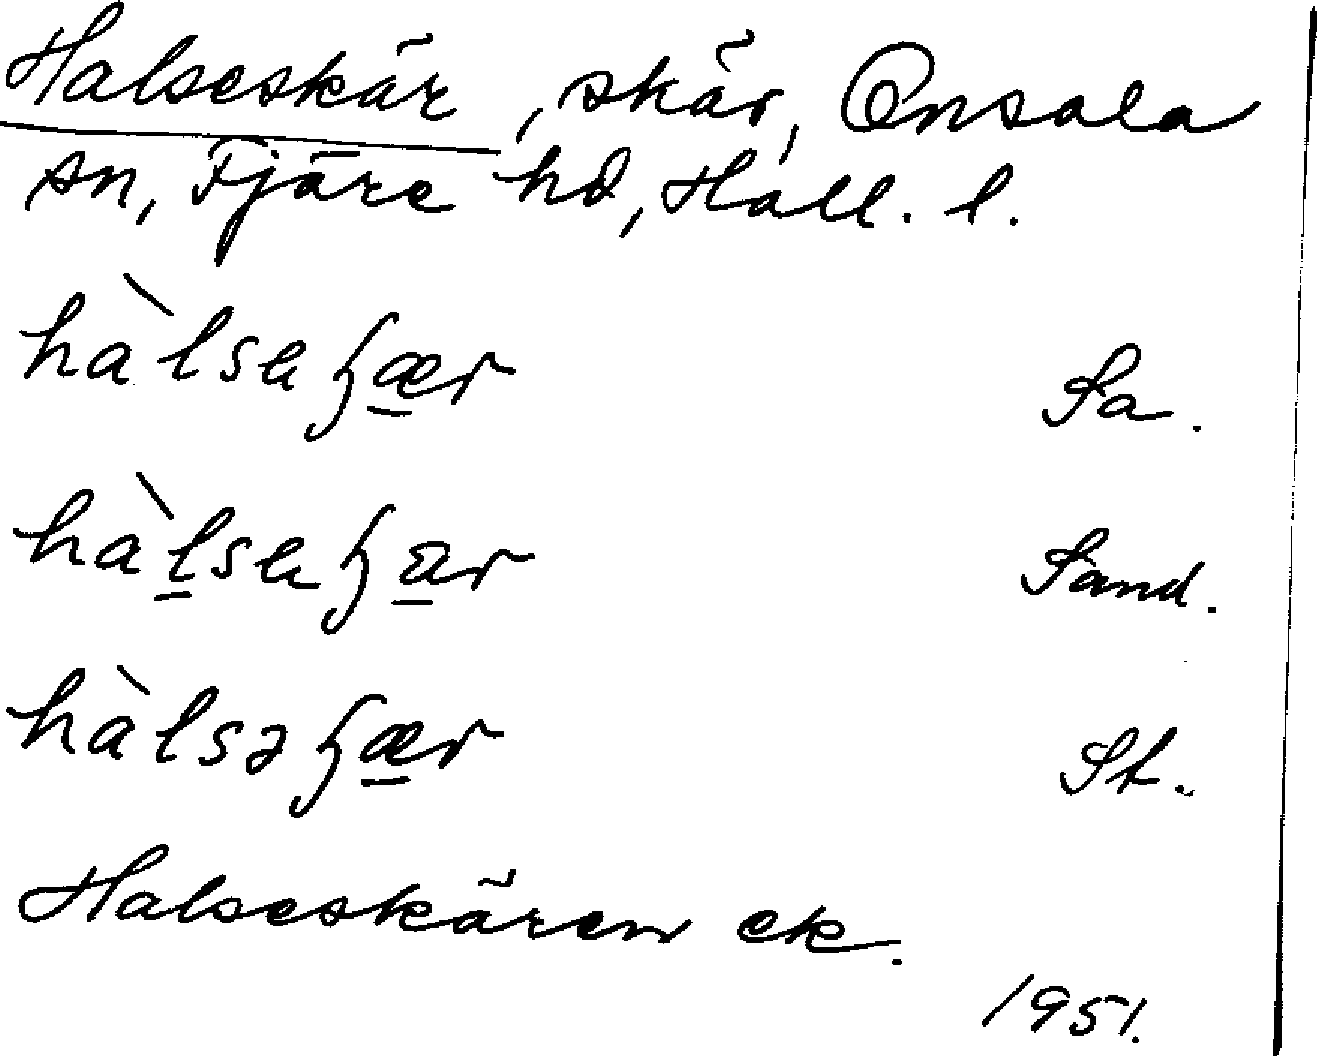 Halseskär, skär, Onsala
sn, Fjäre hd, Hall. l.
hàlsaɧær Sa.
hàlsaɧar Sand.
hàlsəɧær St.
Halseskären ek.
1951.